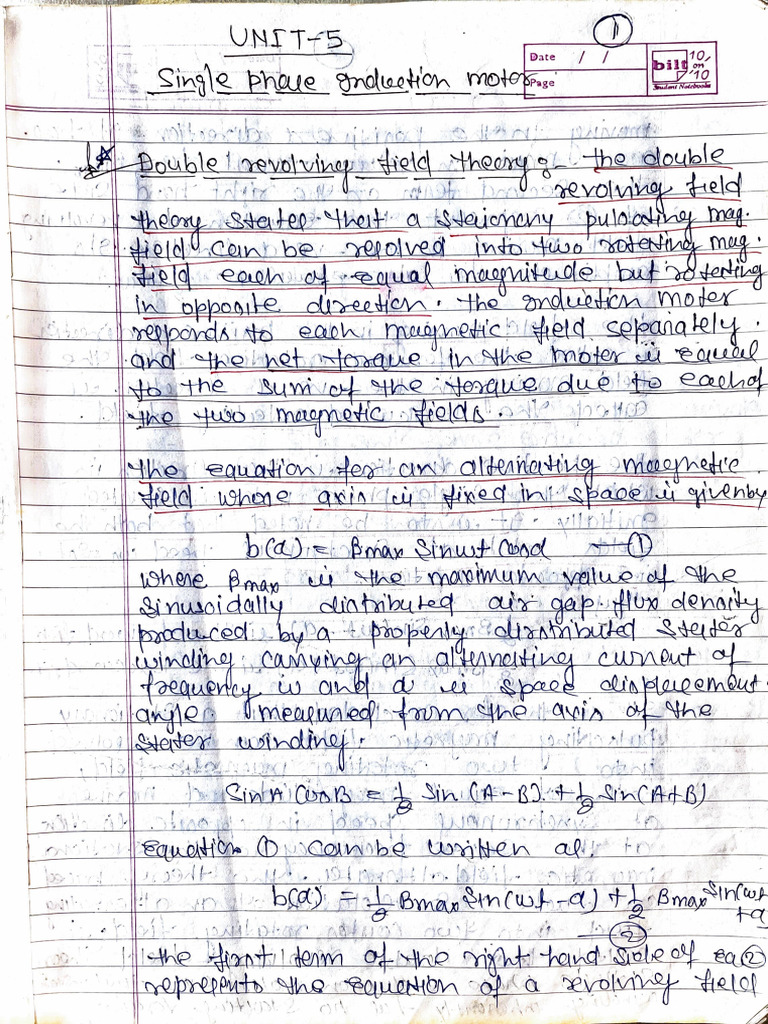 1
UNIT-5
Single phase induction motor
Date / /
Page
bilt 10 on 10
Student Notebooks
Double revolving field theory :- the double
revolving field
theory states that a stationary pulsating mag.
field can be resolved into two rotating mag.
field each of equal magnitude but rotating
in opposite direction. the induction motor
responds to each magnetic field separately.
and the net torque in the motor is equal
to the sum of the torque due to each of
the two magnetic fields.
the equation for an alternating magnetic
field whose axis is fixed in space is given by
b(α) = βmax Sinωt Cosα — ①
where βmax is the maximum value of the
sinusoidally distributed air gap flux density
produced by a properly distributed stator
winding carrying an alternating current of
frequency ω and α is space displacement
angle measured from the axis of the
stator winding.
SinA CosB = 1/2 Sin (A-B) + 1/2 Sin(A+B)
equation ① can be written as.
b(α) = 1/2 Bmax Sin(ωt-α) + 1/2 Bmax Sin(ωt
+α)
— ②
the first term of the right hand side of eq ②
represents the equation of a revolving field